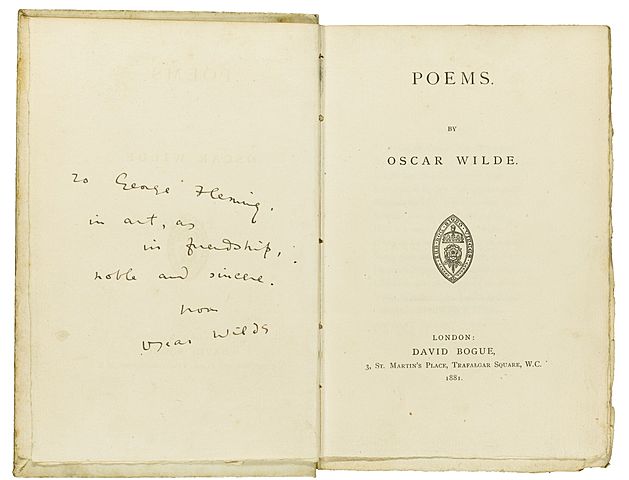 To George Fleming,
in art, as
in friendship,
noble and sincere.
from
Oscar Wilde
POEMS.
BY
OSCAR WILDE.
LONDON:
DAVID BOGUE,
3, ST. MARTIN'S PLACE, TRAFALGAR SQUARE, W.C.
1881.